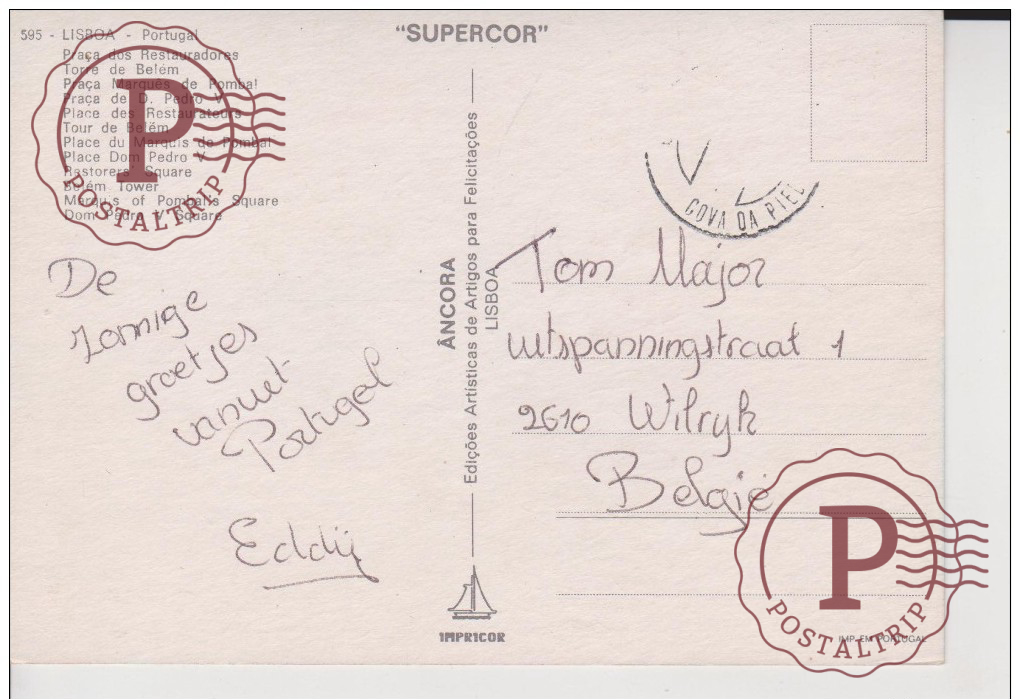 595 - LISBOA - Portugal
Praça dos Restauradores
Torre de Belém
Praça Marquês de Pombal
Praça de D. Pedro V
Place des Restaurateurs
Tour de Belém
Place du Marquis de Pombal
Place Dom Pedro V
Restorers Square
Belém Tower
Marquis of Pombal's Square
Dom Pedro V Square
P
POSTALTRIP
"SUPERCOR"
De
zomige
groetjes
vanuit
Portugal
Eddy
ÂNCORA
Edições Artísticas de Artigos para Felicitações
LISBOA
IMPRICOR
COVA DA PIE
Tom Major
uitspanningstraat 1
2610 Wilryk
België
P
POSTALTRIP
IMP. EM PORTUGAL